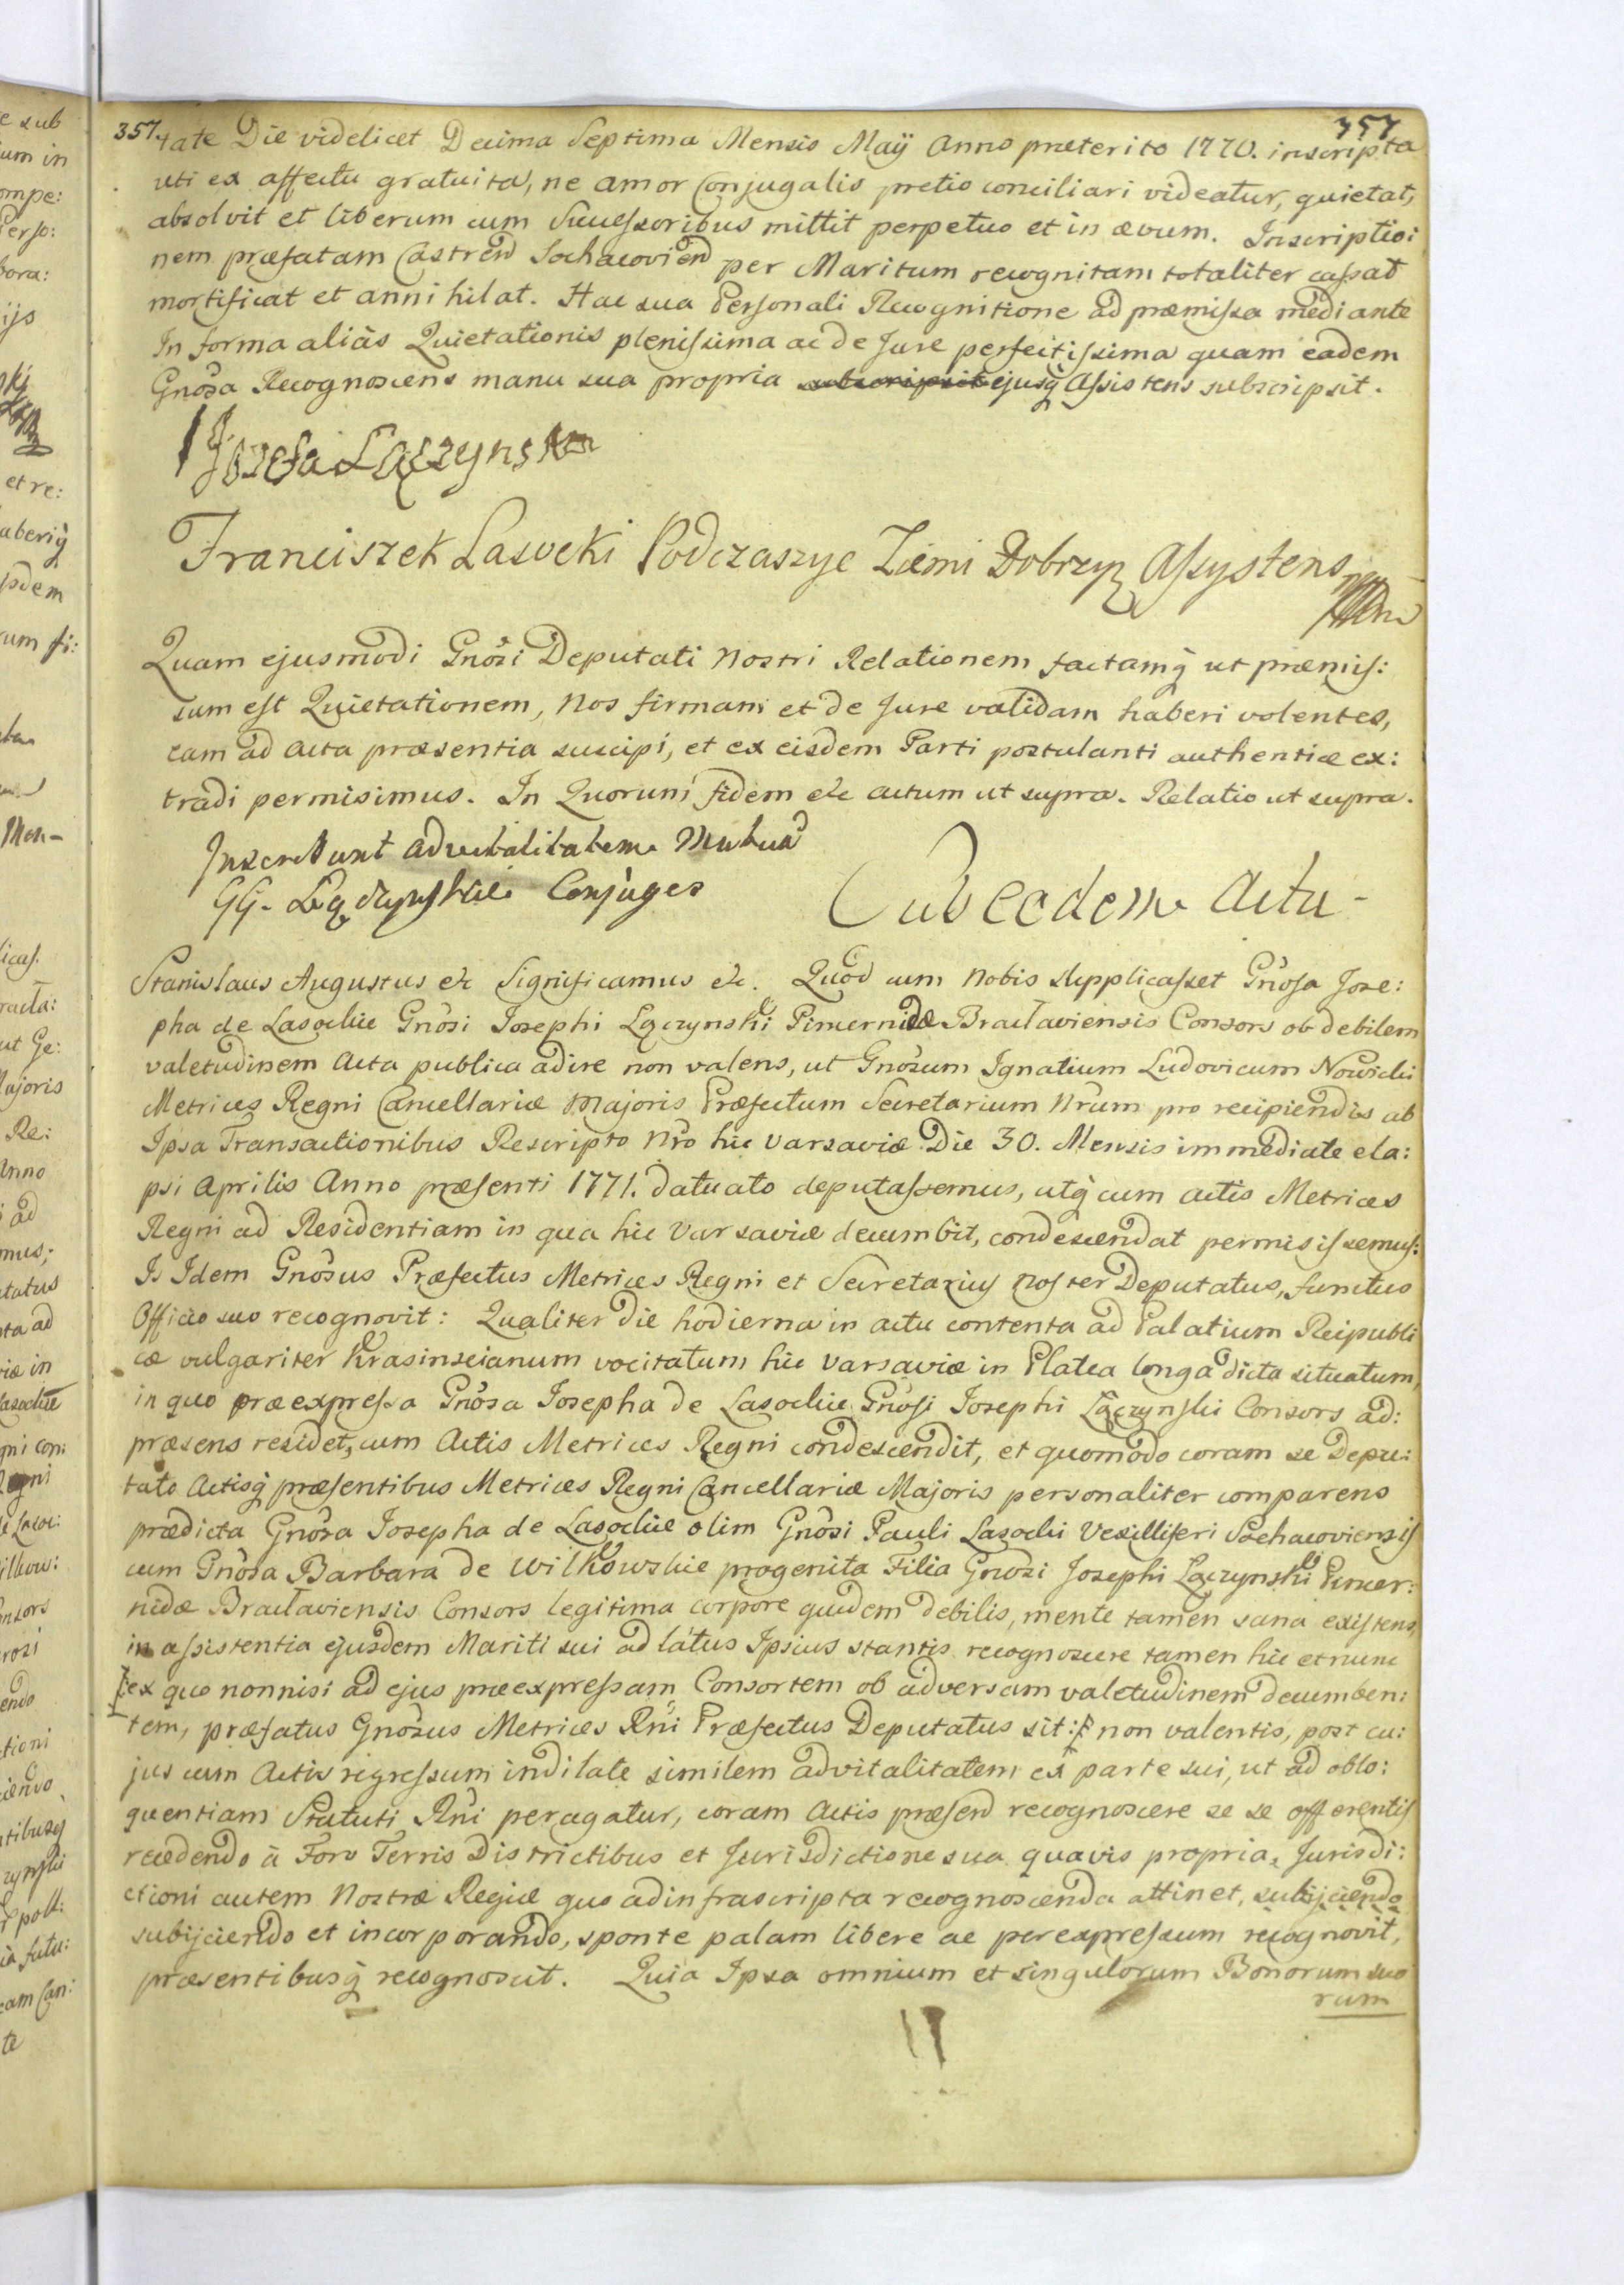 357. 357
tate Die videlicet Decima Septima Mensis Maÿ Anno præterito 1770. inscripta
uti ex affectu gratuita, ne amor Conjugalis pretio conciliari videatur, quietat,
absolvit et liberum cum Successoribus mittit perpetuo et in ævum. Inscriptio:
nem præfatam Castren Sochacovien per Maritum recognitam totaliter cassat
mortificat et annihilat. Hac sua Personali Recognitione ad præmissa mediante
In forma aliàs Quietationis plenissima ac de Jure perfectissima quam eadem
Gnõsa Recognoscens manu sua propria subscripsit ejusq̃ Assistens subscripsit.
Jozefa Łączynska
Franciszek Lasocki Podczaszyc Ziemi Dobrzyn Assystens
Quam ejusmodi Gnõsi Deputati Nostri Relationem factamq̃ ut præmis:
sum est Quietationem, Nos firmam et de Jure validam haberi volentes,
eam ad Acta præsentia suscipi, et ex eisdem Parti postulanti authentice ex:
tradi permisimus. In Quorum fidem etc actum ut supra. Relatio ut supra.
Inscribunt advitalitatem Mutuã
GG. Łączynskie Conjuges
Sub eodem Actu
Stanislaus Augustus etc Significamus etc. Quod cum Nobis supplicasset Gnõsa Jose:
pha de Lasockie Gnõsi Josephi Łączynski Pincernidæ Bracłaviensis Consors ob debilem
valetudinem Acta publica adire non valens, ut Gnõsum Ignatium Ludovicum Nowicki
Metrices Regni Cancellariæ Majoris Præfectum Secretarium Nrũm pro recipiendis ab
Ipsa Transactionibus Rescripto Nrõ hic Varsaviæ Die 30. Mensis immediate ela:
psi Aprilis Anno præsenti 1771. datuato deputassemus, utq̃ cum actis Metrices
Regni ad Residentiam in qua hic Varsaviæ decumbit, condescendat permisissemus:
Is Idem Gnõsus Præfectus Metrices Regni et Secretarius Noster Deputatus, functus
Officio suo recognovit: Qualiter Die hodierna in actu contenta ad Palatium Reipubli
cæ vulgariter Krasinscianum vocitatum hic Varsaviæ in Platea longa dicta situatum,
in quo præexpressa Gnõsa Josepha de Lasockie Gnõsi Josephi Łączynski Consors ad:
præsens residet, cum Actis Metrices Regni condescendit, et quomodo coram se Depu:
tato Actisq̃ præsentibus Metrices Regni Cancellariæ Majoris personaliter comparens
prædicta Gnõsa Josepha de Lasockie olim Gnõsi Pauli Lasocki Vexilliferi Sochacoviensis
cum Gnõsa Barbara de Wilkowskie progenita Filia Gnõsi Josephi Łączynski Pincer:
nidæ Bracłaviensis Consors legitima corpore quidem debilis, mente tamen sana existens,
in assistentia ejusdem Mariti sui ad látus Ipsius stantis recognoscere tamen hic et nunc
ex quo nonnisi ad ejus præexpressam Consortem ob adversam valetudinem decumben:
tem, præfatus Gnõsus Metrices Rñi Præfectus Deputatus sit: non valentis, post cu:
jus cum Actis regressum indilate similem advitalitatem ex parte sui, ut ad oblo:
quentiam Statuti Rñi peragatur, coram Actis præsen recognoscere se se offerentis
recedendo à Foro Terris Districtibus et Jurisdictione sua quavis propria, Jurisdi:
ctioni autem Nostræ Regiæ quo ad infrascripta recognoscenda attinet, subijciendo
subijciendo et incorporando, sponte palam libere ac per expressum recognovit,
præsentibusq̃ recognoscit. Quia Ipsa omnium et singulorum Bonorum suo
rum